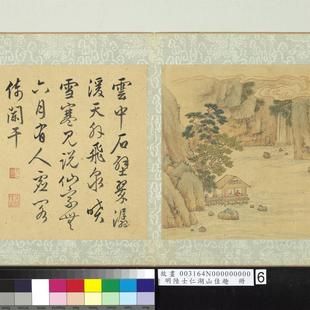 雲中石壁翠潺
湲天外飛泉噴
雪寒見說仙家無
六月有人虛閣
倚闌干
故畫 003164N000000000
明陸士仁湖山佳趣 冊
6